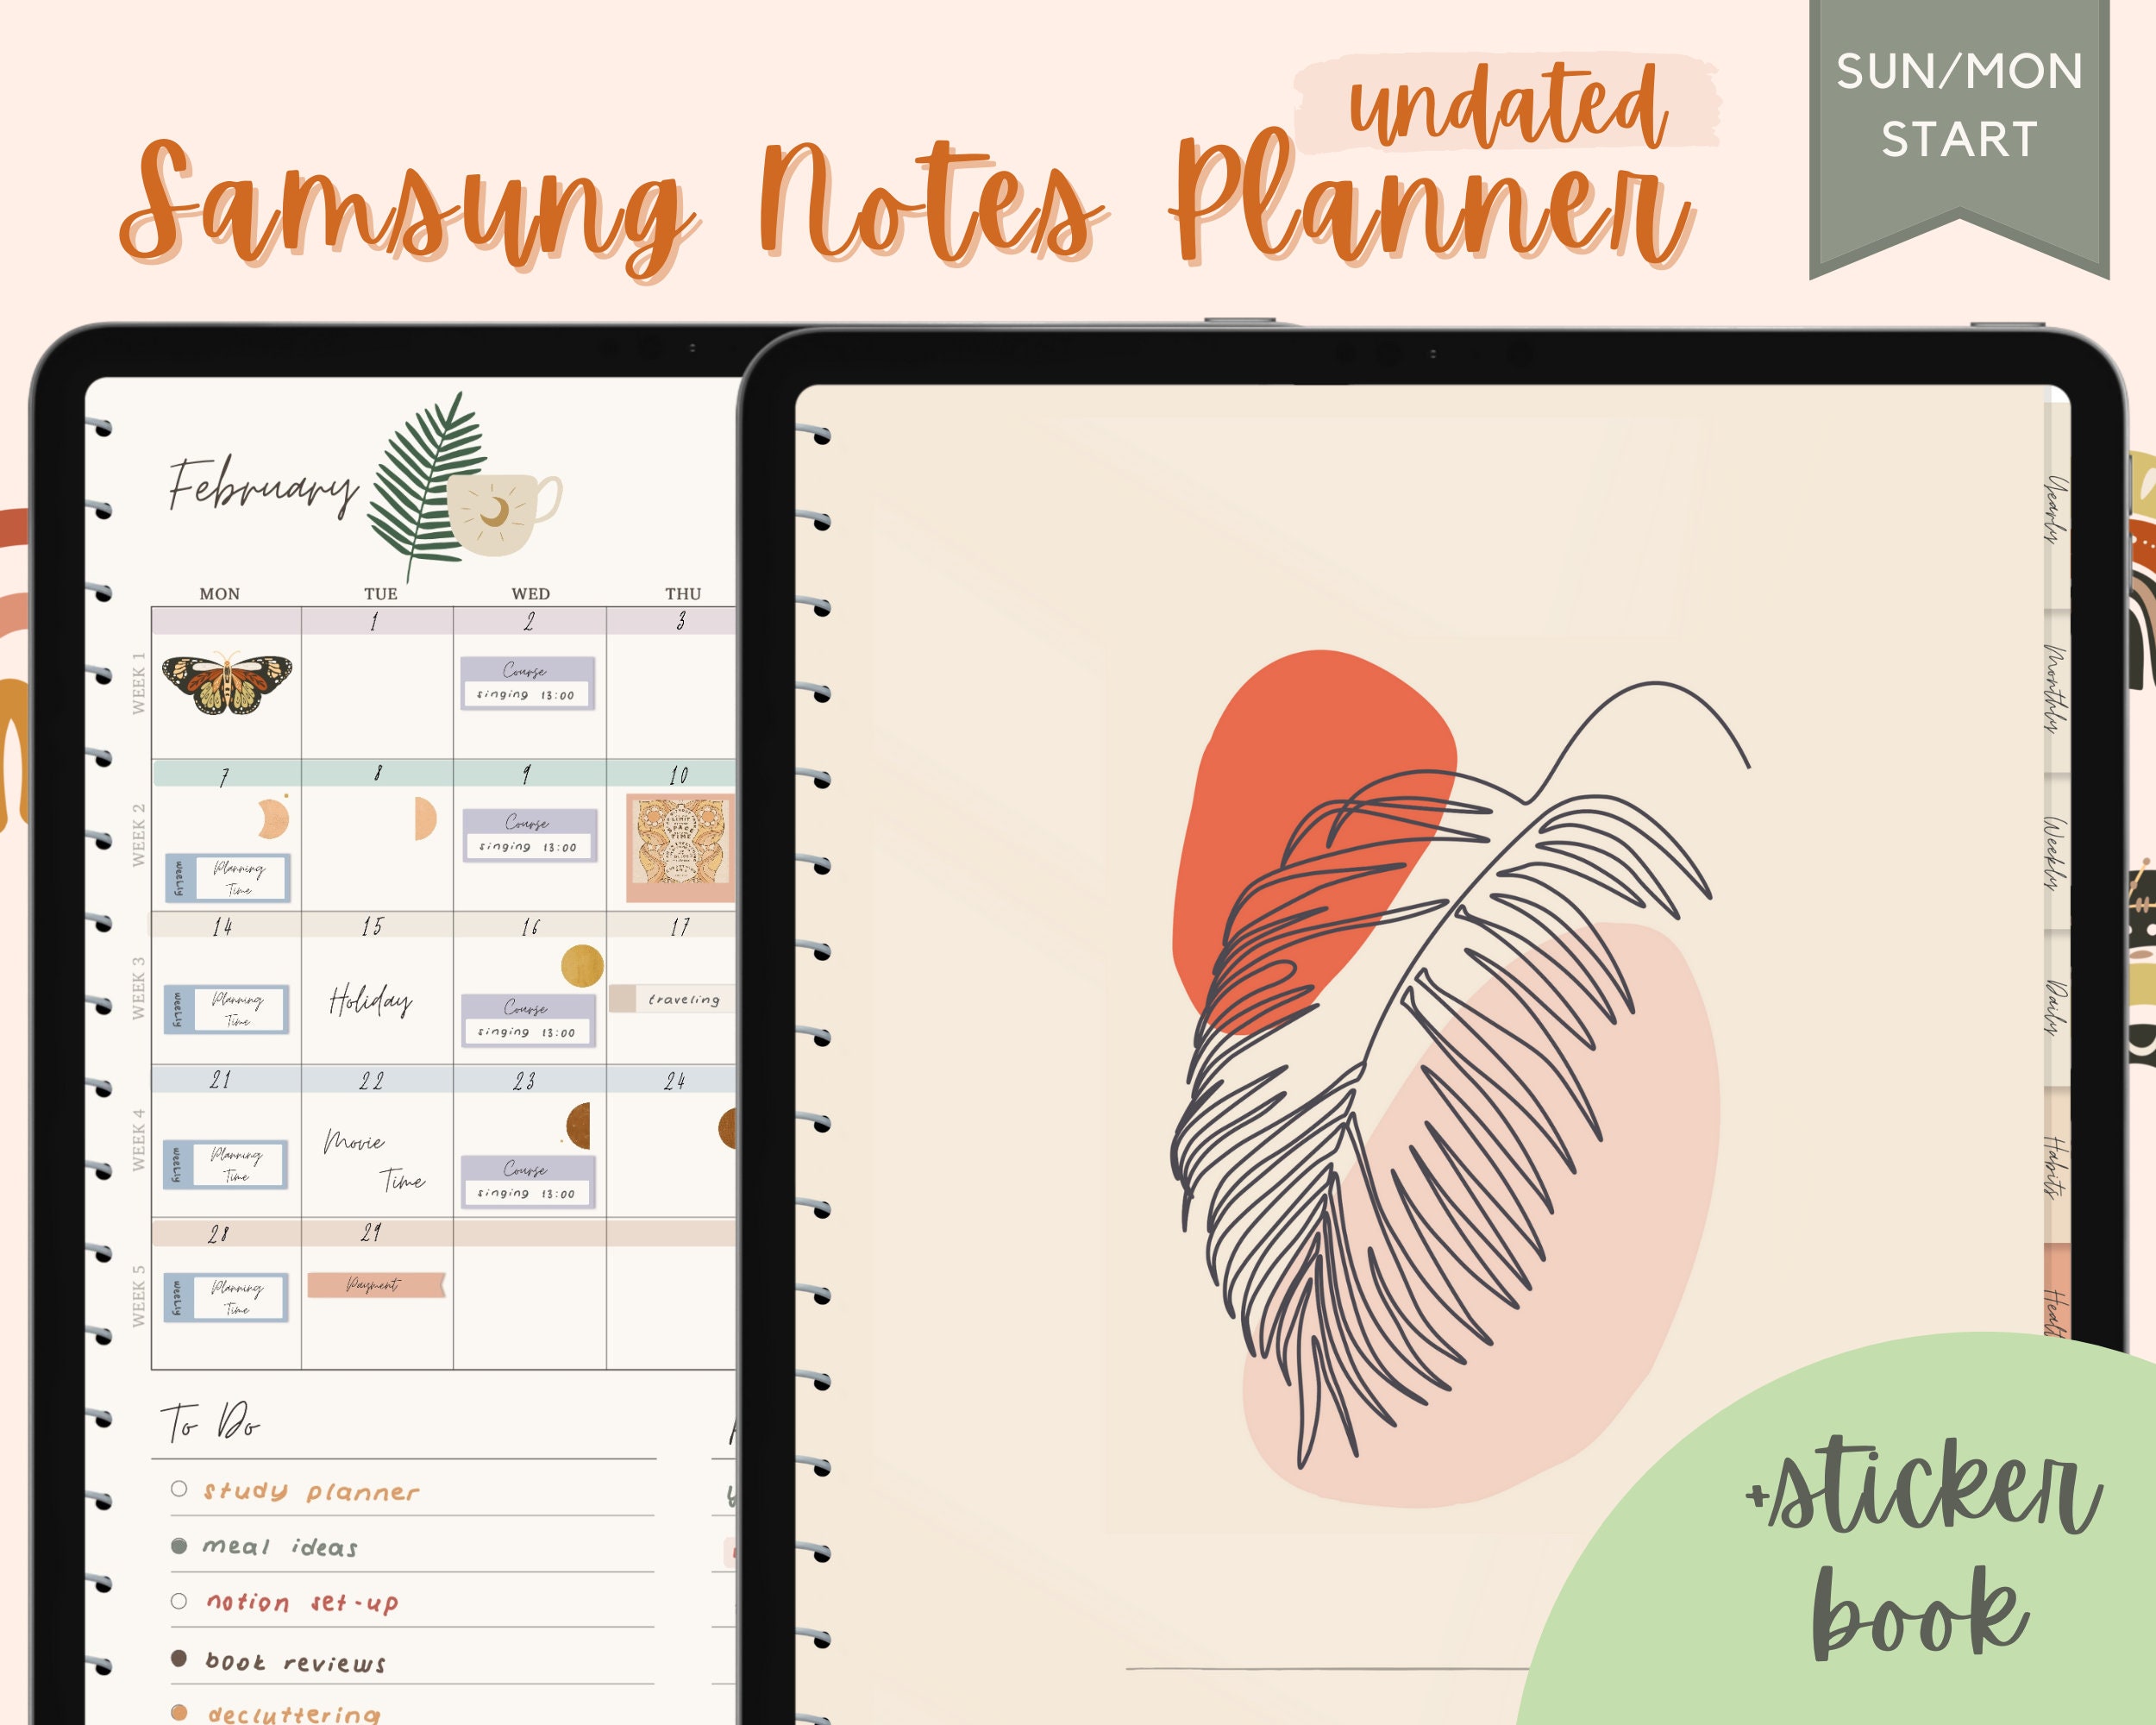 undated
Samsung Notes Planner
SUN/MON
START
February
MON TUE WED THU
WEEK 1
1 2 3
Course
singing 13:00
WEEK 2
7 8 9 10
weekly
Planning
Time
Course
singing 13:00
WEEK 3
14 15 16 17
weekly
Planning
Time
Holiday
Course
singing 13:00
traveling
WEEK 4
21 22 23 24
weekly
Planning
Time
Movie
Time
Course
singing 13:00
WEEK 5
28 29
weekly
Planning
Time
Payment
To Do
study planner
meal ideas
notion set-up
book reviews
decluttering
Yearly
Monthly
Weekly
Daily
Habits
Healt
+sticker
book